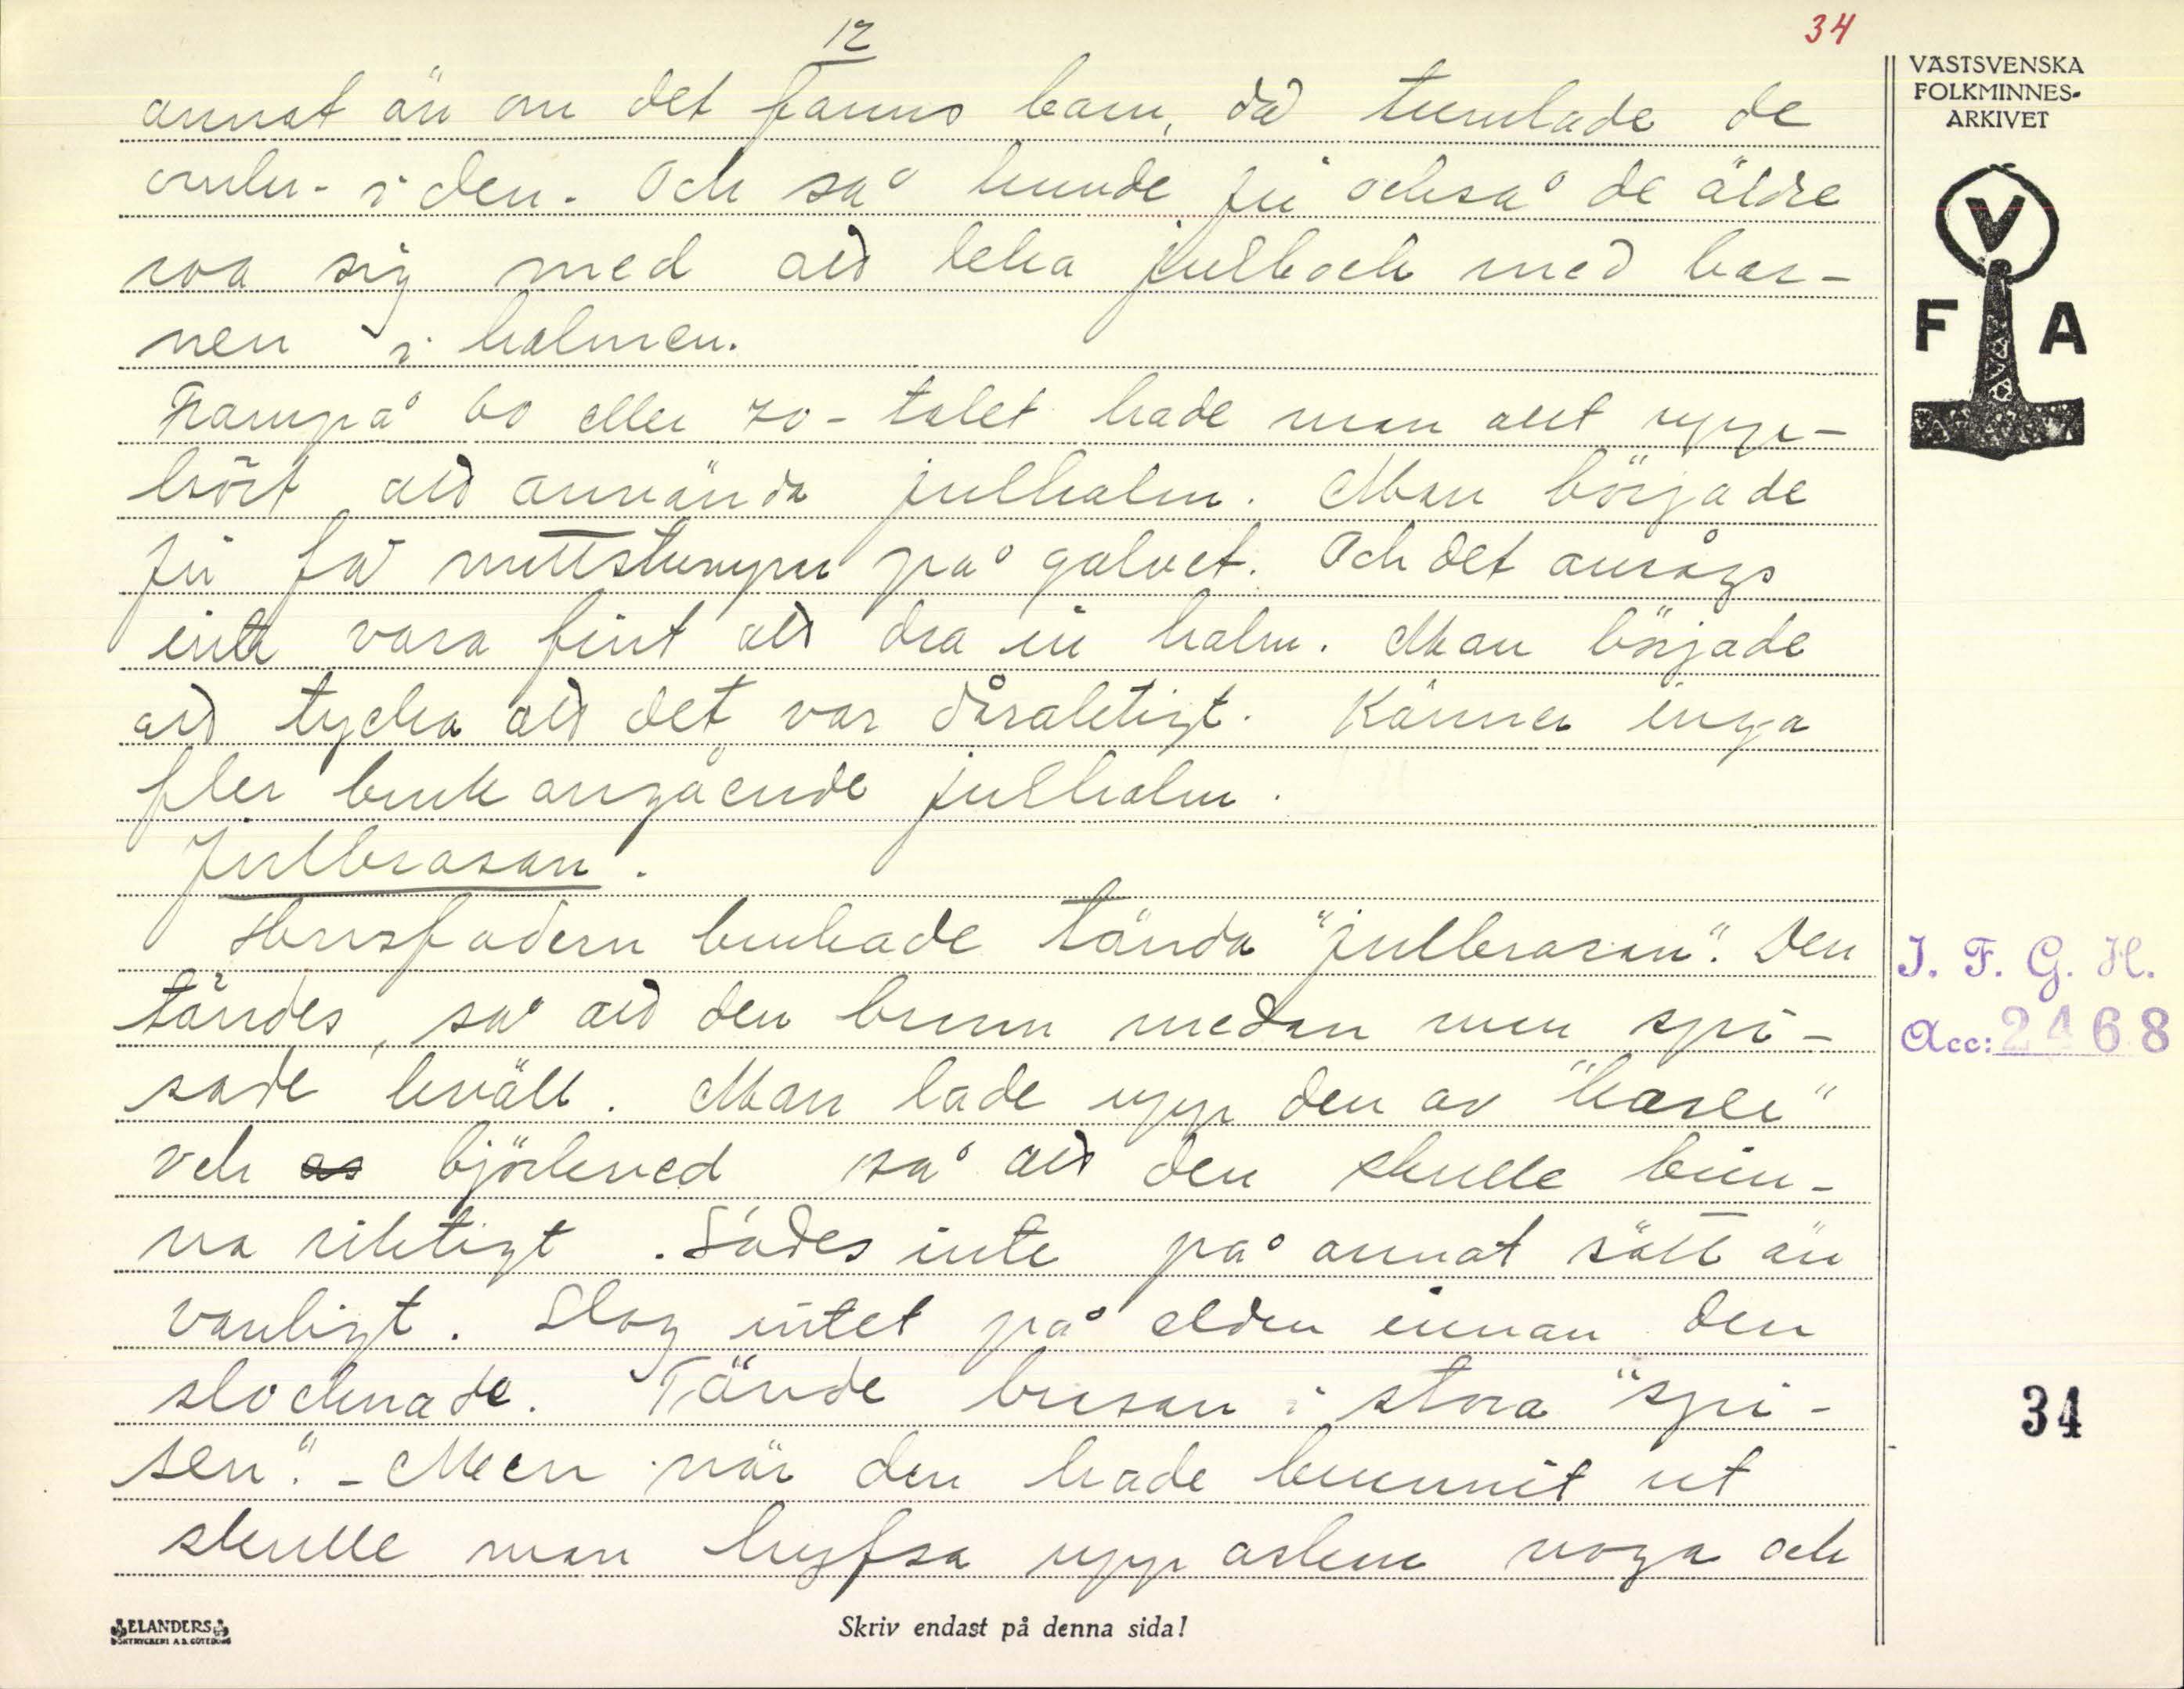 12
34
annat än om det fanns barn, då tumlade de
omkr. i den. Och så kunde ju också de äldre
roa sig med att leka julbock med bar-
nen i halmen.
Frampå 60 eller 70-talet hade man allt upp-
hört att använda julhalm. Man började
ju få mattstumpar på golvet. Och det ansågs
inte vara fint att dra in halm. Man började
att tycka att det var dåraktigt. Känner inga
fler bruk angående julhalm.
Julbrasan.
Husfadern brukade tända "julbrasan". Den
tändes, så att den brann medan man spi-
sade kväll. Man lade upp den av "hasle"
och as björkved så att den skulle brin-
na riktigt. Lades inte på annat sätt än
vanligt. Slog intet på elden innan den
slocknade. Tände brasan i stora "spi-
sen". - Men när den hade brunnit ut
skulle man hyfsa upp askan noga och
VÄSTSVENSKA
FOLKMINNES-
ARKIVET
V
F A
I. F. G. H.
Acc: 2468
34
ELANDERS
BOKTRYCKERI A.B. GÖTEBORG
Skriv endast på denna sida!